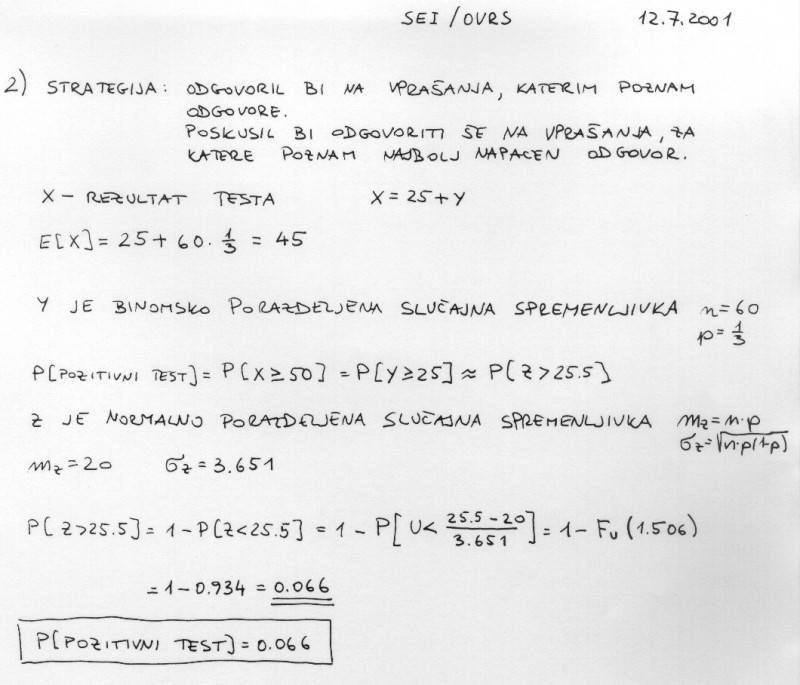 SEI / OVRS 12.7.2001
2) STRATEGIJA: ODGOVORIL BI NA VPRAŠANJA, KATERIM POZNAM
ODGOVORE.
POSKUSIL BI ODGOVORITI ŠE NA VPRAŠANJA, ZA
KATERE POZNAM NAJBOLJ NAPAČEN ODGOVOR.
X – REZULTAT TESTA X = 25 + Y
E[X] = 25 + 60 · 1/3 = 45
Y JE BINOMSKO PORAZDELJENA SLUČAJNA SPREMENLJIVKA n = 60
p = 1/3
P[POZITIVNI TEST] = P[X ≥ 50] = P[Y ≥ 25] ≈ P[Z > 25.5]
Z JE NORMALNO PORAZDELJENA SLUČAJNA SPREMENLJIVKA m_z = n·p
σ_z = √(n·p(1-p))
m_z = 20 σ_z = 3.651
P[Z > 25.5] = 1 - P[Z < 25.5] = 1 - P[U < (25.5 - 20)/3.651] = 1 - F_U (1.506)
= 1 - 0.934 = 0.066
P[POZITIVNI TEST] = 0.066